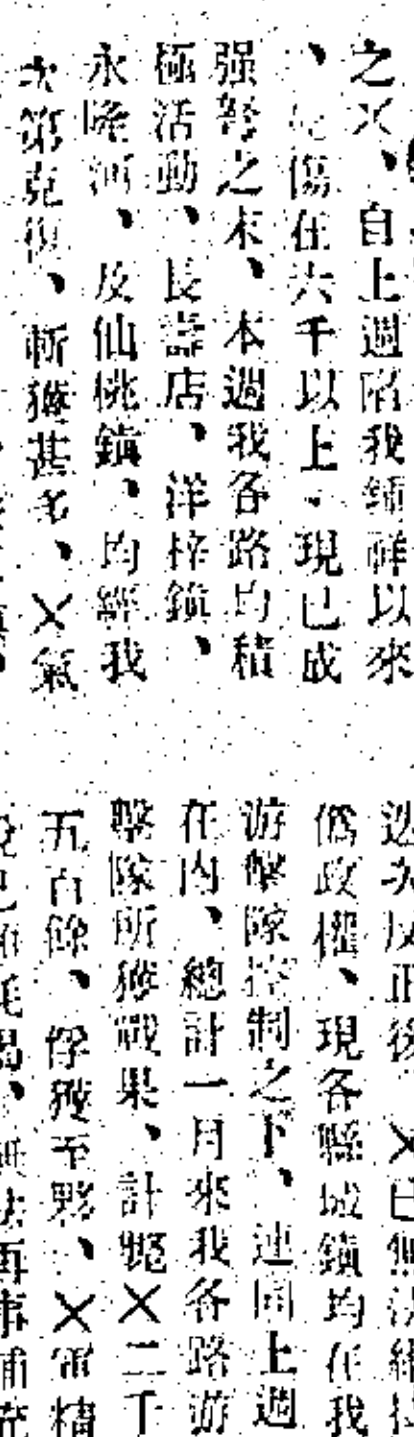 之×、自上週陷我鍾祥以來
、死傷在六千以上、現已成
强弩之末、本週我各路均積
極活動、長壽店、洋梓鎮、
永隆河、及仙桃鎮、均經我
次第克復、斬獲甚多、×氣
迭次反正後、×已無法維持
僞政權、現各縣城鎮均在我
游擊隊控制之下、連同上週
在內、總計一月來我各路游
擊隊所獲戰果、計斃×二千
五百餘、俘獲至夥、×軍精